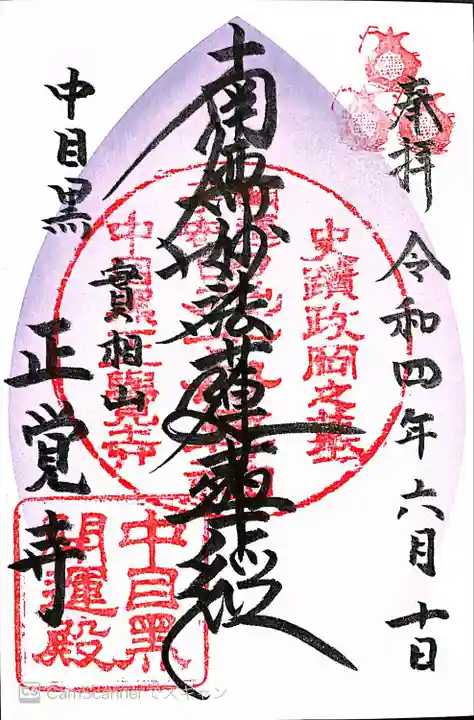 奉拝
令和四年六月十日
南無妙法蓮華経
史蹟政岡之墓
中目黒正覺寺
實相山
中目黒
正覚寺
中目黒
開運殿
CS CamScannerでスキャン